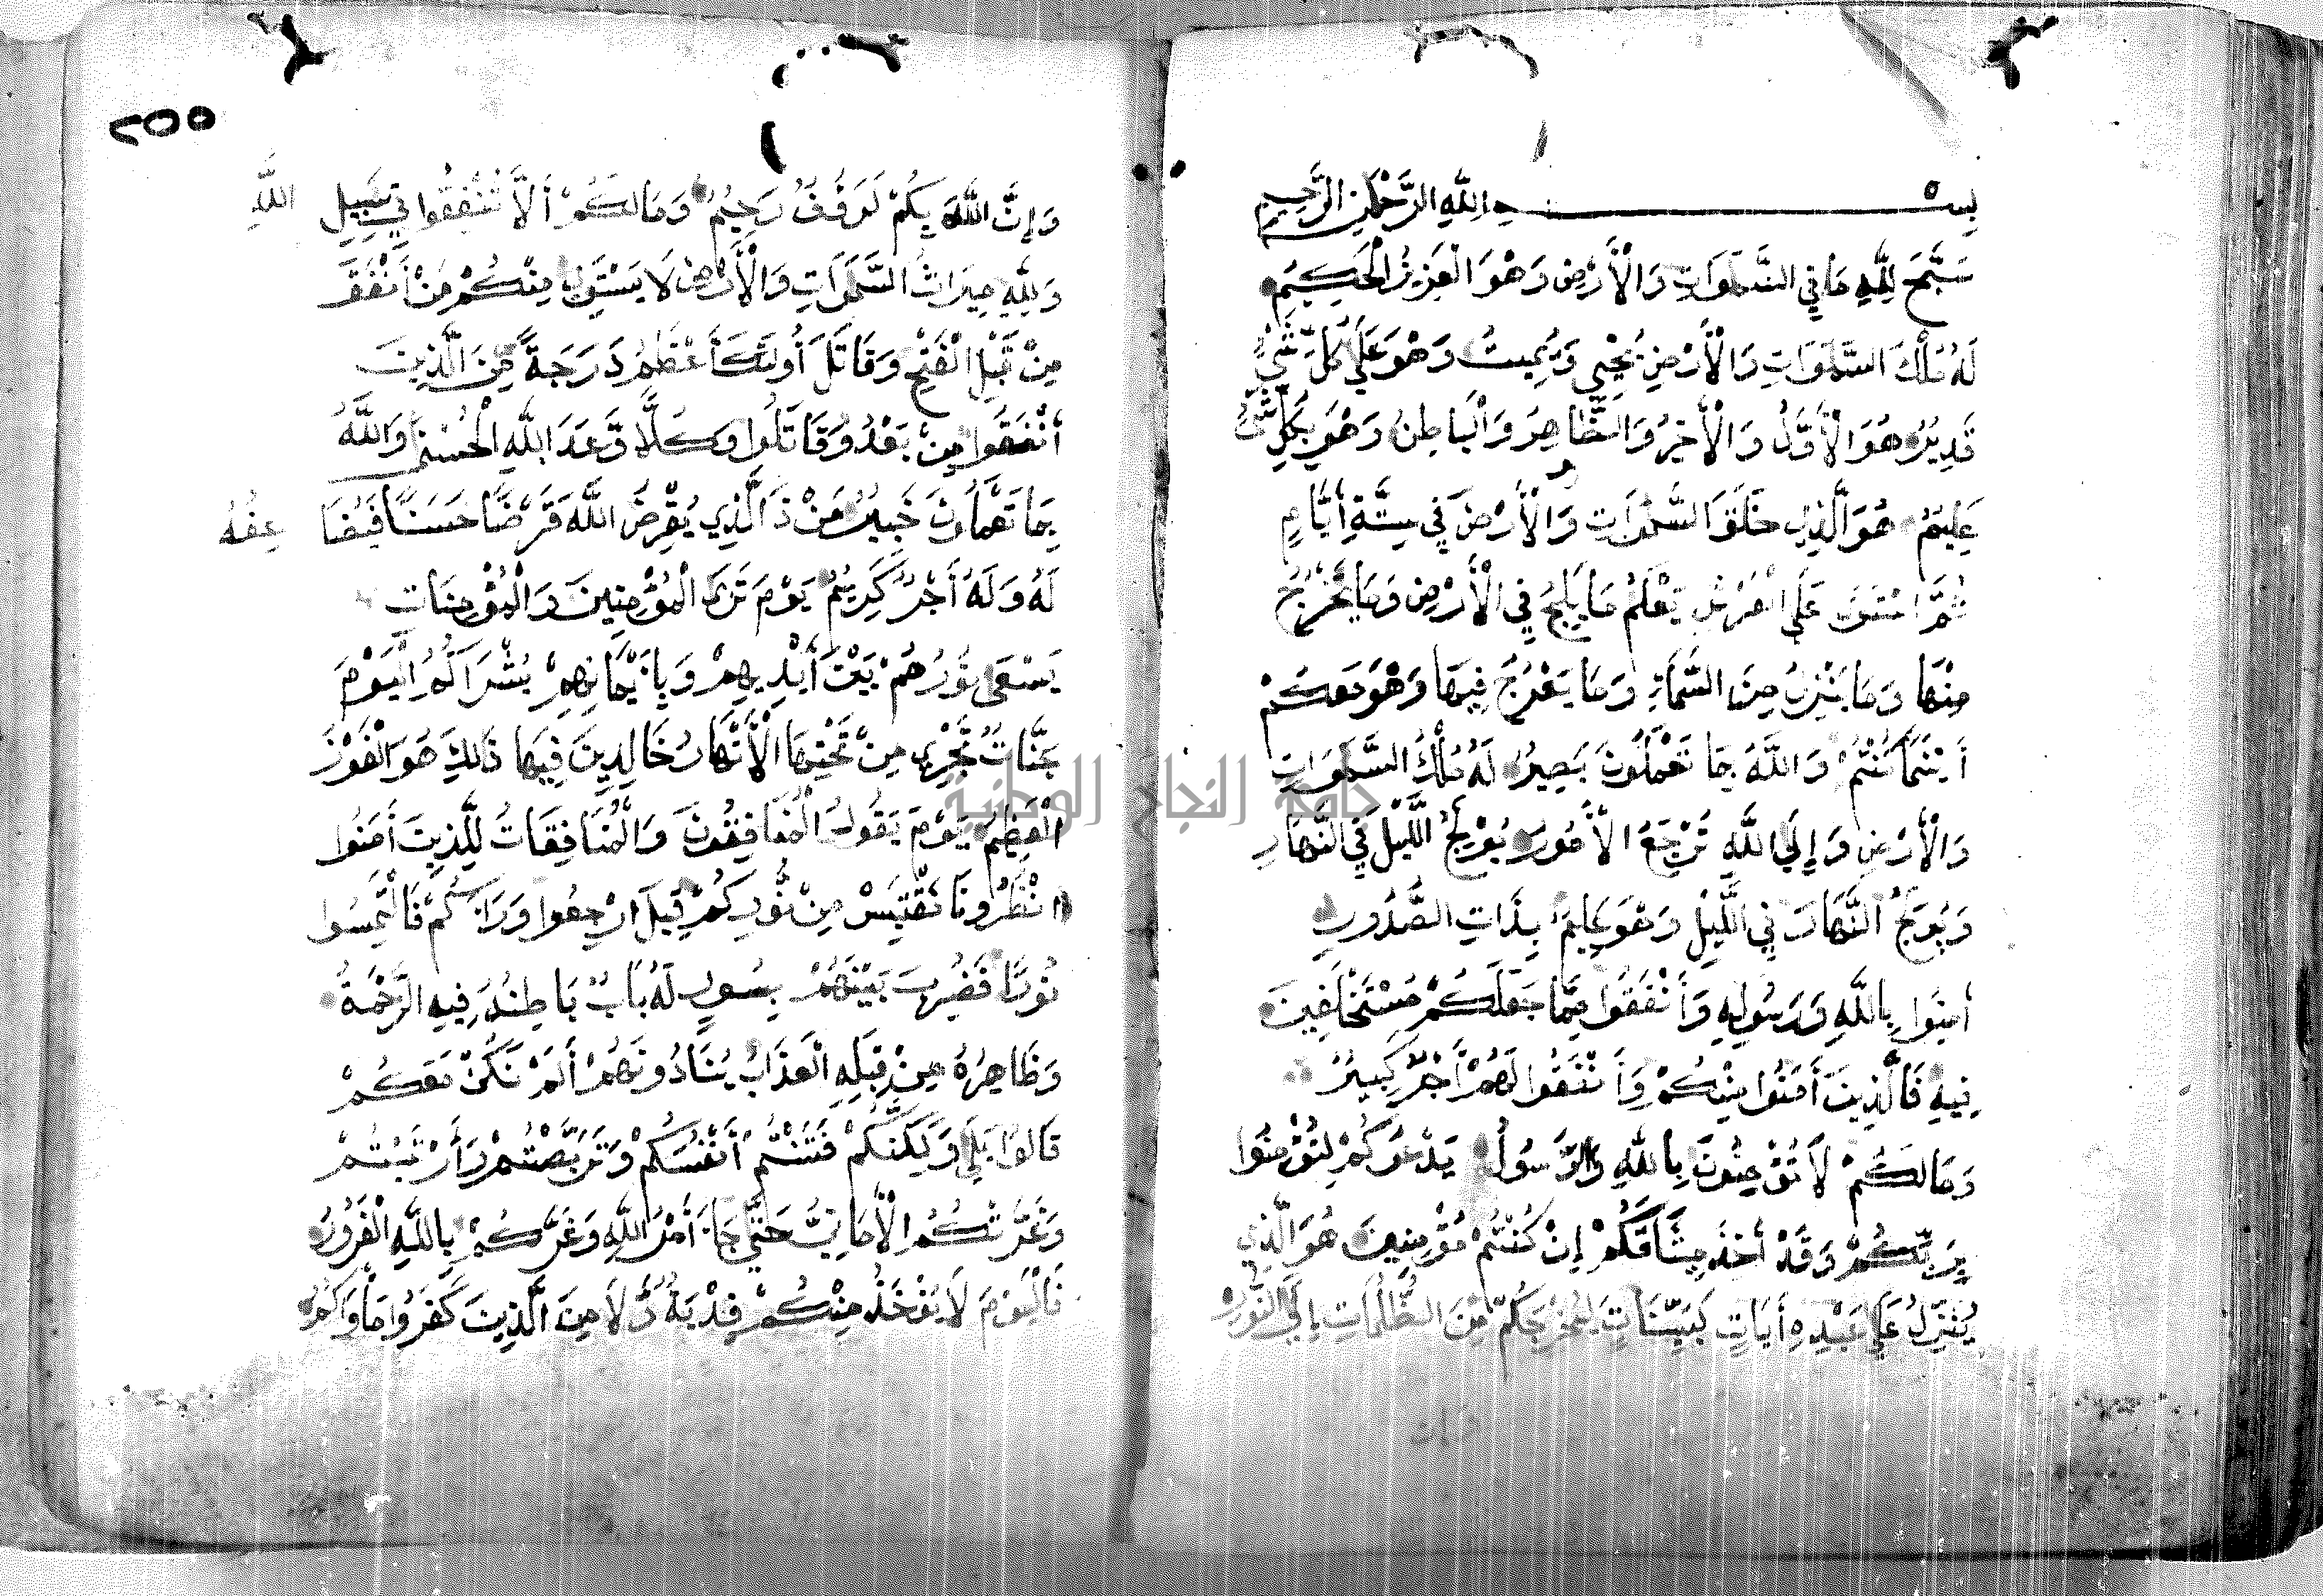 بسم الله الرحمن الرحيم
سَبَّحَ لِلَّهِ مَا فِي السَّمَوَاتِ وَالْأَرْضِ وَهُوَ الْعَزِيزُ الْحَكِيمُ
لَهُ مُلْكُ السَّمَوَاتِ وَالْأَرْضِ يُحْيِي وَيُمِيتُ وَهْوَ عَلَي كُلِّ شَيْءٍ
قَدِيرٌ هُوَ الْأَوَّلُ وَالْأَخِرُ وَالظَّاهِرُ وَالْبَاطِنُ وَهْوَ بِكُلِّ شَيْءٍ
عَلِيمٌ هُوَ الَّذِي خَلَقَ السَّمَوَاتِ وَالْأَرْضَ فِي سِتَّةِ أَيَّامٍ
ثُمَّ اسْتَوَى عَلَي الْعَرْشِ يَعْلَمُ مَا يَلِجُ فِي الْأَرْضِ وَمَا يَخْرُجُ
مِنْهَا وَمَا يَنْزِلُ مِنَ السَّمَاءِ وَمَا يَعْرُجُ فِيهَا وَهْوَ مَعَكُمْ
أَيْنَمَا كُنْتُمْ وَاللَّهُ بِمَا تَعْمَلُونَ بَصِيرٌ لَهُ مُلْكُ السَّمَوَاتِ
وَالْأَرْضِ وَإِلَي اللَّهِ تُرْجَعُ الْأُمُورُ يُولِجُ اللَّيْلَ فِي النَّهَارِ
وَيُولِجُ النَّهَارَ فِي اللَّيْلِ وَهْوَ عَلِيمٌ بِذَاتِ الصُّدُورِ
أَمِنُوا بِاللَّهِ وَرَسُولِهِ وَأَنْفِقُوا مِمَّا جَعَلَكُمْ مُسْتَخْلَفِينَ
فِيهِ فَالَّذِينَ أَمَنُوا مِنْكُمْ وَأَنْفَقُوا لَهُمْ أَجْرٌ كَبِيرٌ
وَمَا لَكُمْ لَا تُؤْمِنُونَ بِاللَّهِ وَالرَّسُولُ يَدْعُوكُمْ لِتُؤْمِنُوا
بِرَبِّكُمْ وَقَدْ أَخَذَ مِيثَاقَكُمْ إِنْ كُنْتُمْ مُؤْمِنِينَ هُوَ الَّذِي
يُنَزِّلُ عَلَي عَبْدِهِ أَيَاتٍ بَيِّنَاتٍ لِيُخْرِجَكُمْ مِنَ الظُّلُمَاتِ إِلَي النُّورِ
٢٥٥
وَإِنَّ اللَّهَ بِكُمْ لَرَؤُفٌ رَحِيمٌ وَمَا لَكُمْ أَلَّا تُنْفِقُوا فِي سَبِيلِ اللَّهِ
وَلِلَّهِ مِيرَاثُ السَّمَوَاتِ وَالْأَرْضِ لَا يَسْتَوِي مِنْكُمْ مَنْ أَنْفَقَ
مِنْ قَبْلِ الْفَتْحِ وَقَاتَلَ أُولَئِكَ أَعْظَمُ دَرَجَةً مِنَ الَّذِينَ
أَنْفَقُوا مِنْ بَعْدُ وَقَاتَلُوا وَكُلًّا وَعَدَ اللَّهُ الْحُسْنَى وَاللَّهُ
بِمَا تَعْمَلُونَ خَبِيرٌ مَنْ ذَا الَّذِي يُقْرِضُ اللَّهَ قَرْضًا حَسَنًا فَيُضَا عِفُهُ
لَهُ وَلَهُ أَجْرٌ كَرِيمٌ يَوْمَ تَرَى الْمُؤْمِنِينَ وَالْمُؤْمِنَاتِ
يَسْعَى نُورُهُمْ بَيْنَ أَيْدِيهِمْ وَبِأَيْمَانِهِمْ بُشْرَاكُمُ الْيَوْمَ
جَنَّاتٌ تَجْرِي مِنْ تَحْتِهَا الْأَنْهَارُ خَالِدِينَ فِيهَا ذَلِكَ هُوَ الْفَوْزُ
الْعَظِيمُ يَوْمَ يَقُولُ الْمُنَافِقُونَ وَالْمُنَافِقَاتُ لِلَّذِينَ أَمَنُوا
انْظُرُونَا نَقْتَبِسْ مِنْ نُورِكُمْ قِيلَ ارْجِعُوا وَرَاءَكُمْ فَالْتَمِسُوا
نُورًا فَضُرِبَ بَيْنَهُمْ بِسُورٍ لَهُ بَابٌ بَاطِنُهُ فِيهِ الرَّحْمَةُ
وَظَاهِرُهُ مِنْ قِبَلِهِ الْعَذَابُ يُنَادُونَهُمْ أَلَمْ نَكُنْ مَعَكُمْ
قَالُوا بَلَي وَلَكِنَّكُمْ فَتَنْتُمْ أَنْفُسَكُمْ وَتَرَبَّصْتُمْ وَارْتَبْتُمْ
وَغَرَّتْكُمُ الْأَمَانِيُّ حَتَّي جَاءَ أَمْرُ اللَّهِ وَغَرَّكُمْ بِاللَّهِ الْغَرُورُ
فَالْيَوْمَ لَا يُؤْخَذُ مِنْكُمْ فِدْيَةٌ وَّلَا مِنَ الَّذِينَ كَفَرُوا مَأْوَاكُمُ
جامعة النجاح الوطنية